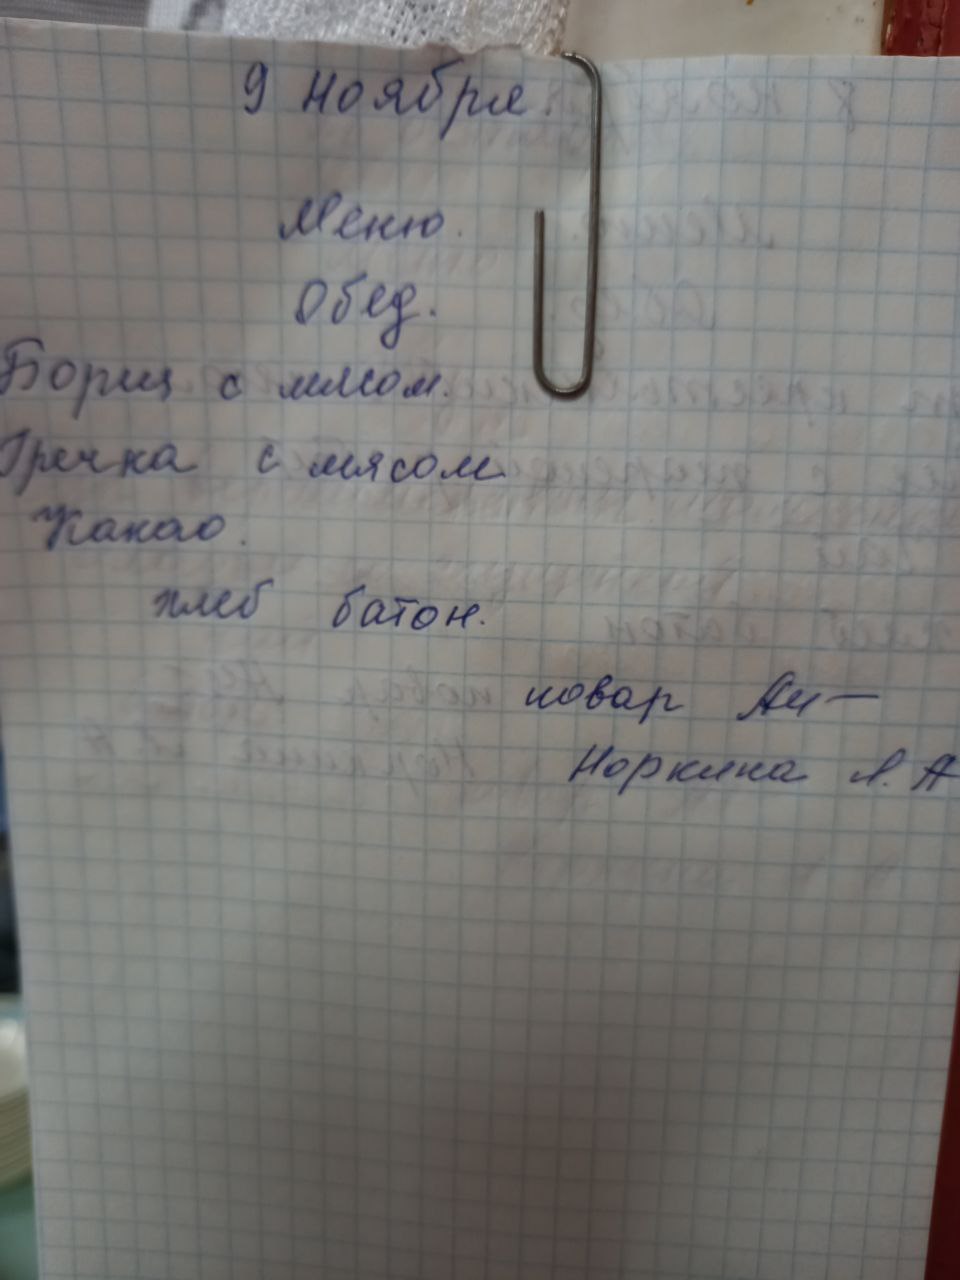 9 Ноября.
Меню.
Обед.
Борщ с мясом.
Гречка с мясом
Какао.
хлеб батон.
повар
Норкина Л. А